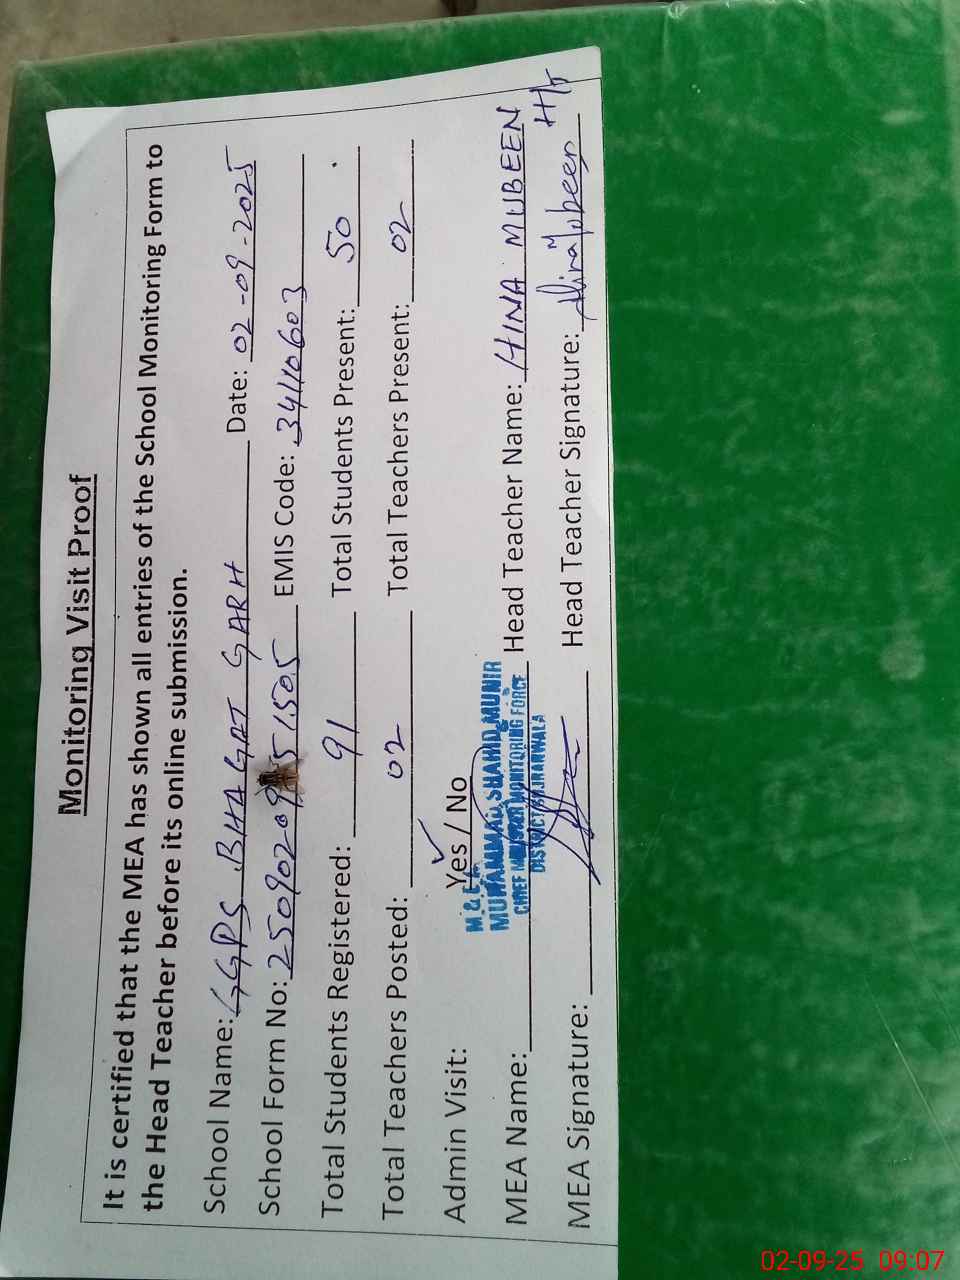 Monitoring Visit Proof
It is certified that the MEA has shown all entries of the School Monitoring Form to
the Head Teacher before its online submission.
School Name: GGPS BHAGAT GARH Date: 02-09-2025
School Form No: EMIS Code: 34110603
Total Students Registered: 91 Total Students Present: 50
Total Teachers Posted: 02 Total Teachers Present: 02
Admin Visit: Yes / No
M. & E.
MUHAMMAD SHAHID MUNIR
CHIEF MINISTER MONITORING FORCE
DISTRICT GUJRANWALA
MEA Name: Head Teacher Name: HINA MUBEEN
MEA Signature: Head Teacher Signature: Hina Mubeen H/T
02-09-25 09:07